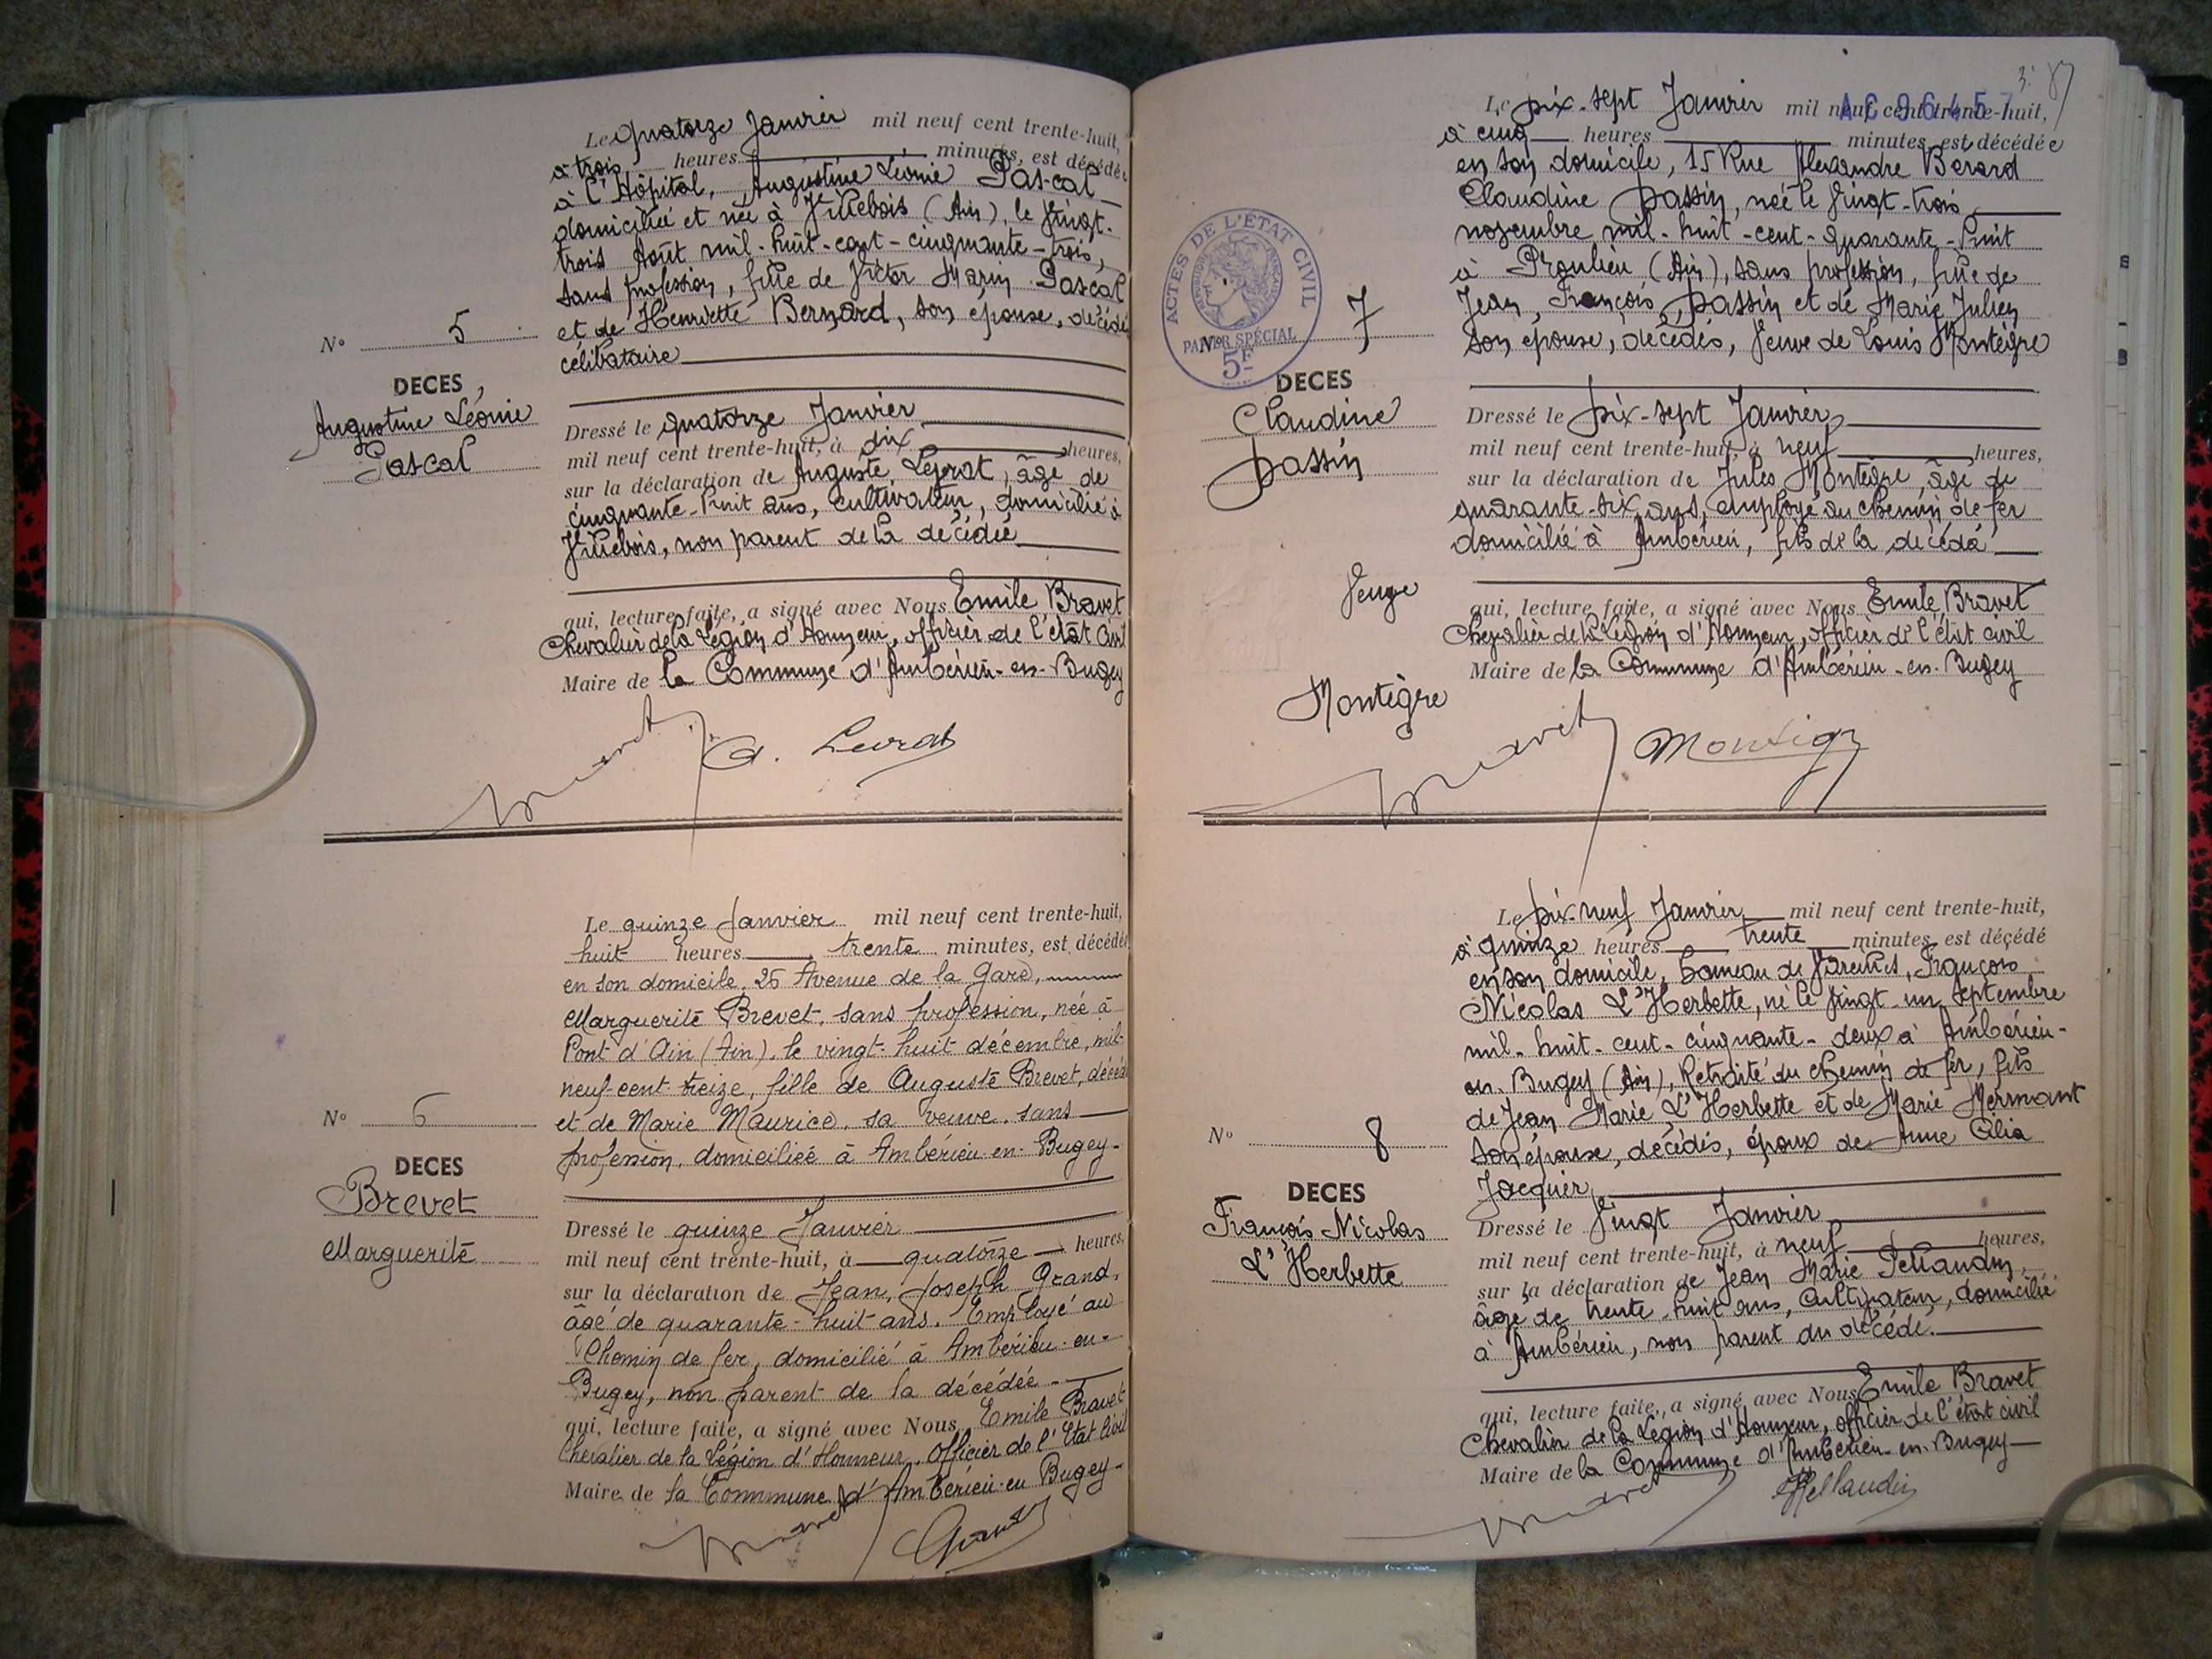 Le quatorze Janvier mil neuf cent trente-huit,
à trois heures minutes, est décédée
à l'Hôpital, Augustine Léonie Pascal
domiciliée et née à Villebois (Ain), le vingt-
trois Août mil-huit-cent-cinquante-trois,
sans profession, fille de Victor Marin Pascal
et de Henriette Bernard, son épouse, décédés
célibataire
N° 5
DECES
Augustine Léonie
Pascal
Dressé le quatorze Janvier
mil neuf cent trente-huit, à dix heures,
sur la déclaration de Auguste Leyrat, âgé de
cinquante-huit ans, cultivateur, domicilié à
Villebois, non parent de la décédée
qui, lecture faite, a signé avec Nous Emile Bravet
Chevalier de la Légion d'Honneur, officier de l'état Civil
Maire de la Commune d'Ambérieu-en-Bugey
Le quinze Janvier mil neuf cent trente-huit,
huit heures trente minutes, est décédée
en son domicile, 26 Avenue de la Gare,
Marguerite Brevet, sans profession, née à
Pont d'Ain (Ain), le vingt-huit décembre, mil-
neuf-cent-treize, fille de Auguste Brevet, décédé
et de Marie Maurice, sa veuve, sans
profession, domiciliée à Ambérieu-en-Bugey-
N° 6
DECES
Brevet
Marguerite
Dressé le quinze Janvier
mil neuf cent trente-huit, à quatorze heures,
sur la déclaration de Jean, Joseph Grand,
âgé de quarante-huit ans, Employé au
Chemin de fer, domicilié à Ambérieu-en-
Bugey, non parent de la décédée-
qui, lecture faite, a signé avec Nous, Emile Bravet
Chevalier de la Légion d'Honneur, Officier de l'Etat Civil
Maire de la Commune d'Ambérieu-en Bugey-
3. 87
AC96457
Le Dix-sept Janvier mil neuf cent trente-huit,
à cinq heures minutes est décédée
en son domicile, 15 Rue Alexandre Bérard
Claudine Dassin, née le vingt-trois
novembre mil-huit-cent-quarante-huit
à Proulieu (Ain), sans profession, fille de
Jean, François Dassin et de Marie Julien
son épouse, décédés, Veuve de Louis Montègre
ACTES DE L'ETAT CIVIL
PAPIER SPÉCIAL
5F
N° 7
DECES
Claudine
Dassin
Veuve
Montègre
Dressé le Dix-sept Janvier
mil neuf cent trente-huit, à neuf heures,
sur la déclaration de Jules Montègre, âgé de
quarante-six ans, employé au chemin de fer
domicilié à Ambérieu, fils de la décédée
qui, lecture faite, a signé avec Nous Emile Bravet
Chevalier de la Légion d'Honneur, officier de l'état civil
Maire de la Commune d'Ambérieu-en-Bugey
Le Dix-neuf Janvier mil neuf cent trente-huit,
à quinze heures trente minutes est décédé
en son domicile, hameau de Vareilles, François
Nicolas L'Herbette, né le vingt-un Septembre
mil-huit-cent-cinquante-deux à Ambérieu-
en-Bugey (Ain), Retraité du chemin de fer, fils
de Jean Marie L'Herbette et de Marie Mermant
son épouse, décédés, époux de Anne Célia
Jacquier
N° 8
DECES
François Nicolas
L'Herbette
Dressé le Vingt Janvier
mil neuf cent trente-huit, à neuf heures,
sur la déclaration de Jean Marie Pellaudin,
âgé de trente-huit ans, Cultivateur, domicilié
à Ambérieu, non parent du décédé.
qui, lecture faite, a signé avec Nous Emile Bravet
Chevalier de la Légion d'Honneur, officier de l'état civil
Maire de la Commune d'Ambérieu-en-Bugey